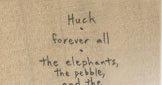 Huck
forever all
the elephants,
the pebble,
and the